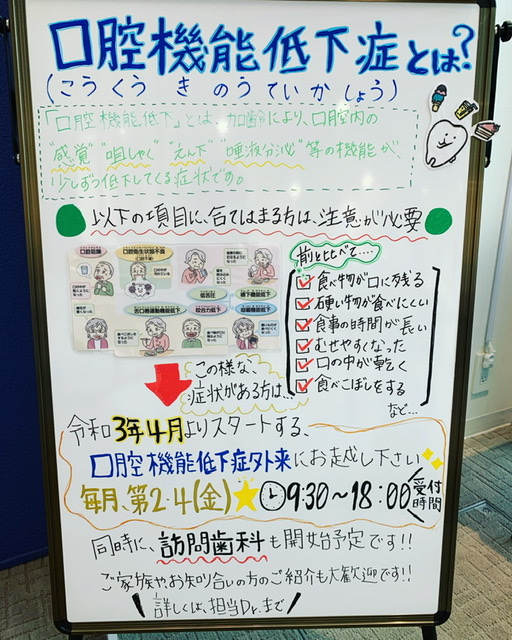 口腔機能低下症とは?
(こうくう きのうていかしょう)
「口腔機能低下」とは、加齢により、口腔内の
"感覚" "咀しゃく" "えん下" "唾液分泌" 等の機能が、
少しずつ低下してくる症状です。
以下の項目に、当てはまる方は、注意が必要
口腔乾燥
口腔衛生状態不良
低舌圧
舌口唇運動機能低下
咬合力低下
嚥下機能低下
咀嚼機能低下
前と比べて....
食べ物が口に残る
硬い物が食べにくい
食事の時間が長い
むせやすくなった
口の中が乾く
食べこぼしをする
など...
この様な、
症状がある方は...
令和3年4月よりスタートする、
口腔機能低下症外来にお越し下さい
毎月、第2・4(金)★9:30~18:00
受付時間
同時に、訪問歯科も開始予定です!!
ご家族やお知り合いの方のご紹介も大歓迎です!!
詳しくは、担当Dr.まで